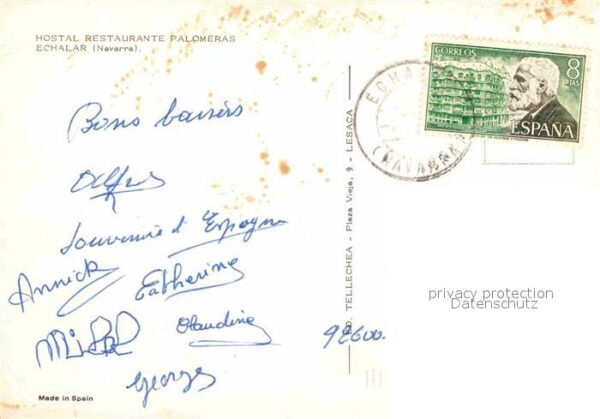 HOSTAL RESTAURANTE PALOMERAS
ECHALAR (Navarra).
Bons baisers
Souvenirs d'Espagne
Annick
Catherine
Michel
Claudine
Georges
Made in Spain
TELLECHEA - Plaza Vieja, 9 - LESACA
CORREOS
8 PTAS
ESPAÑA
(NAVARRA)
privacy protection
Datenschutz
92600.